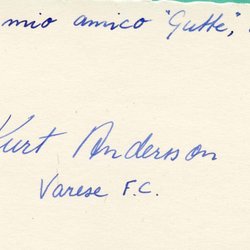 mio amico "Gutte",
Kurt Andersson
Varese F.C.